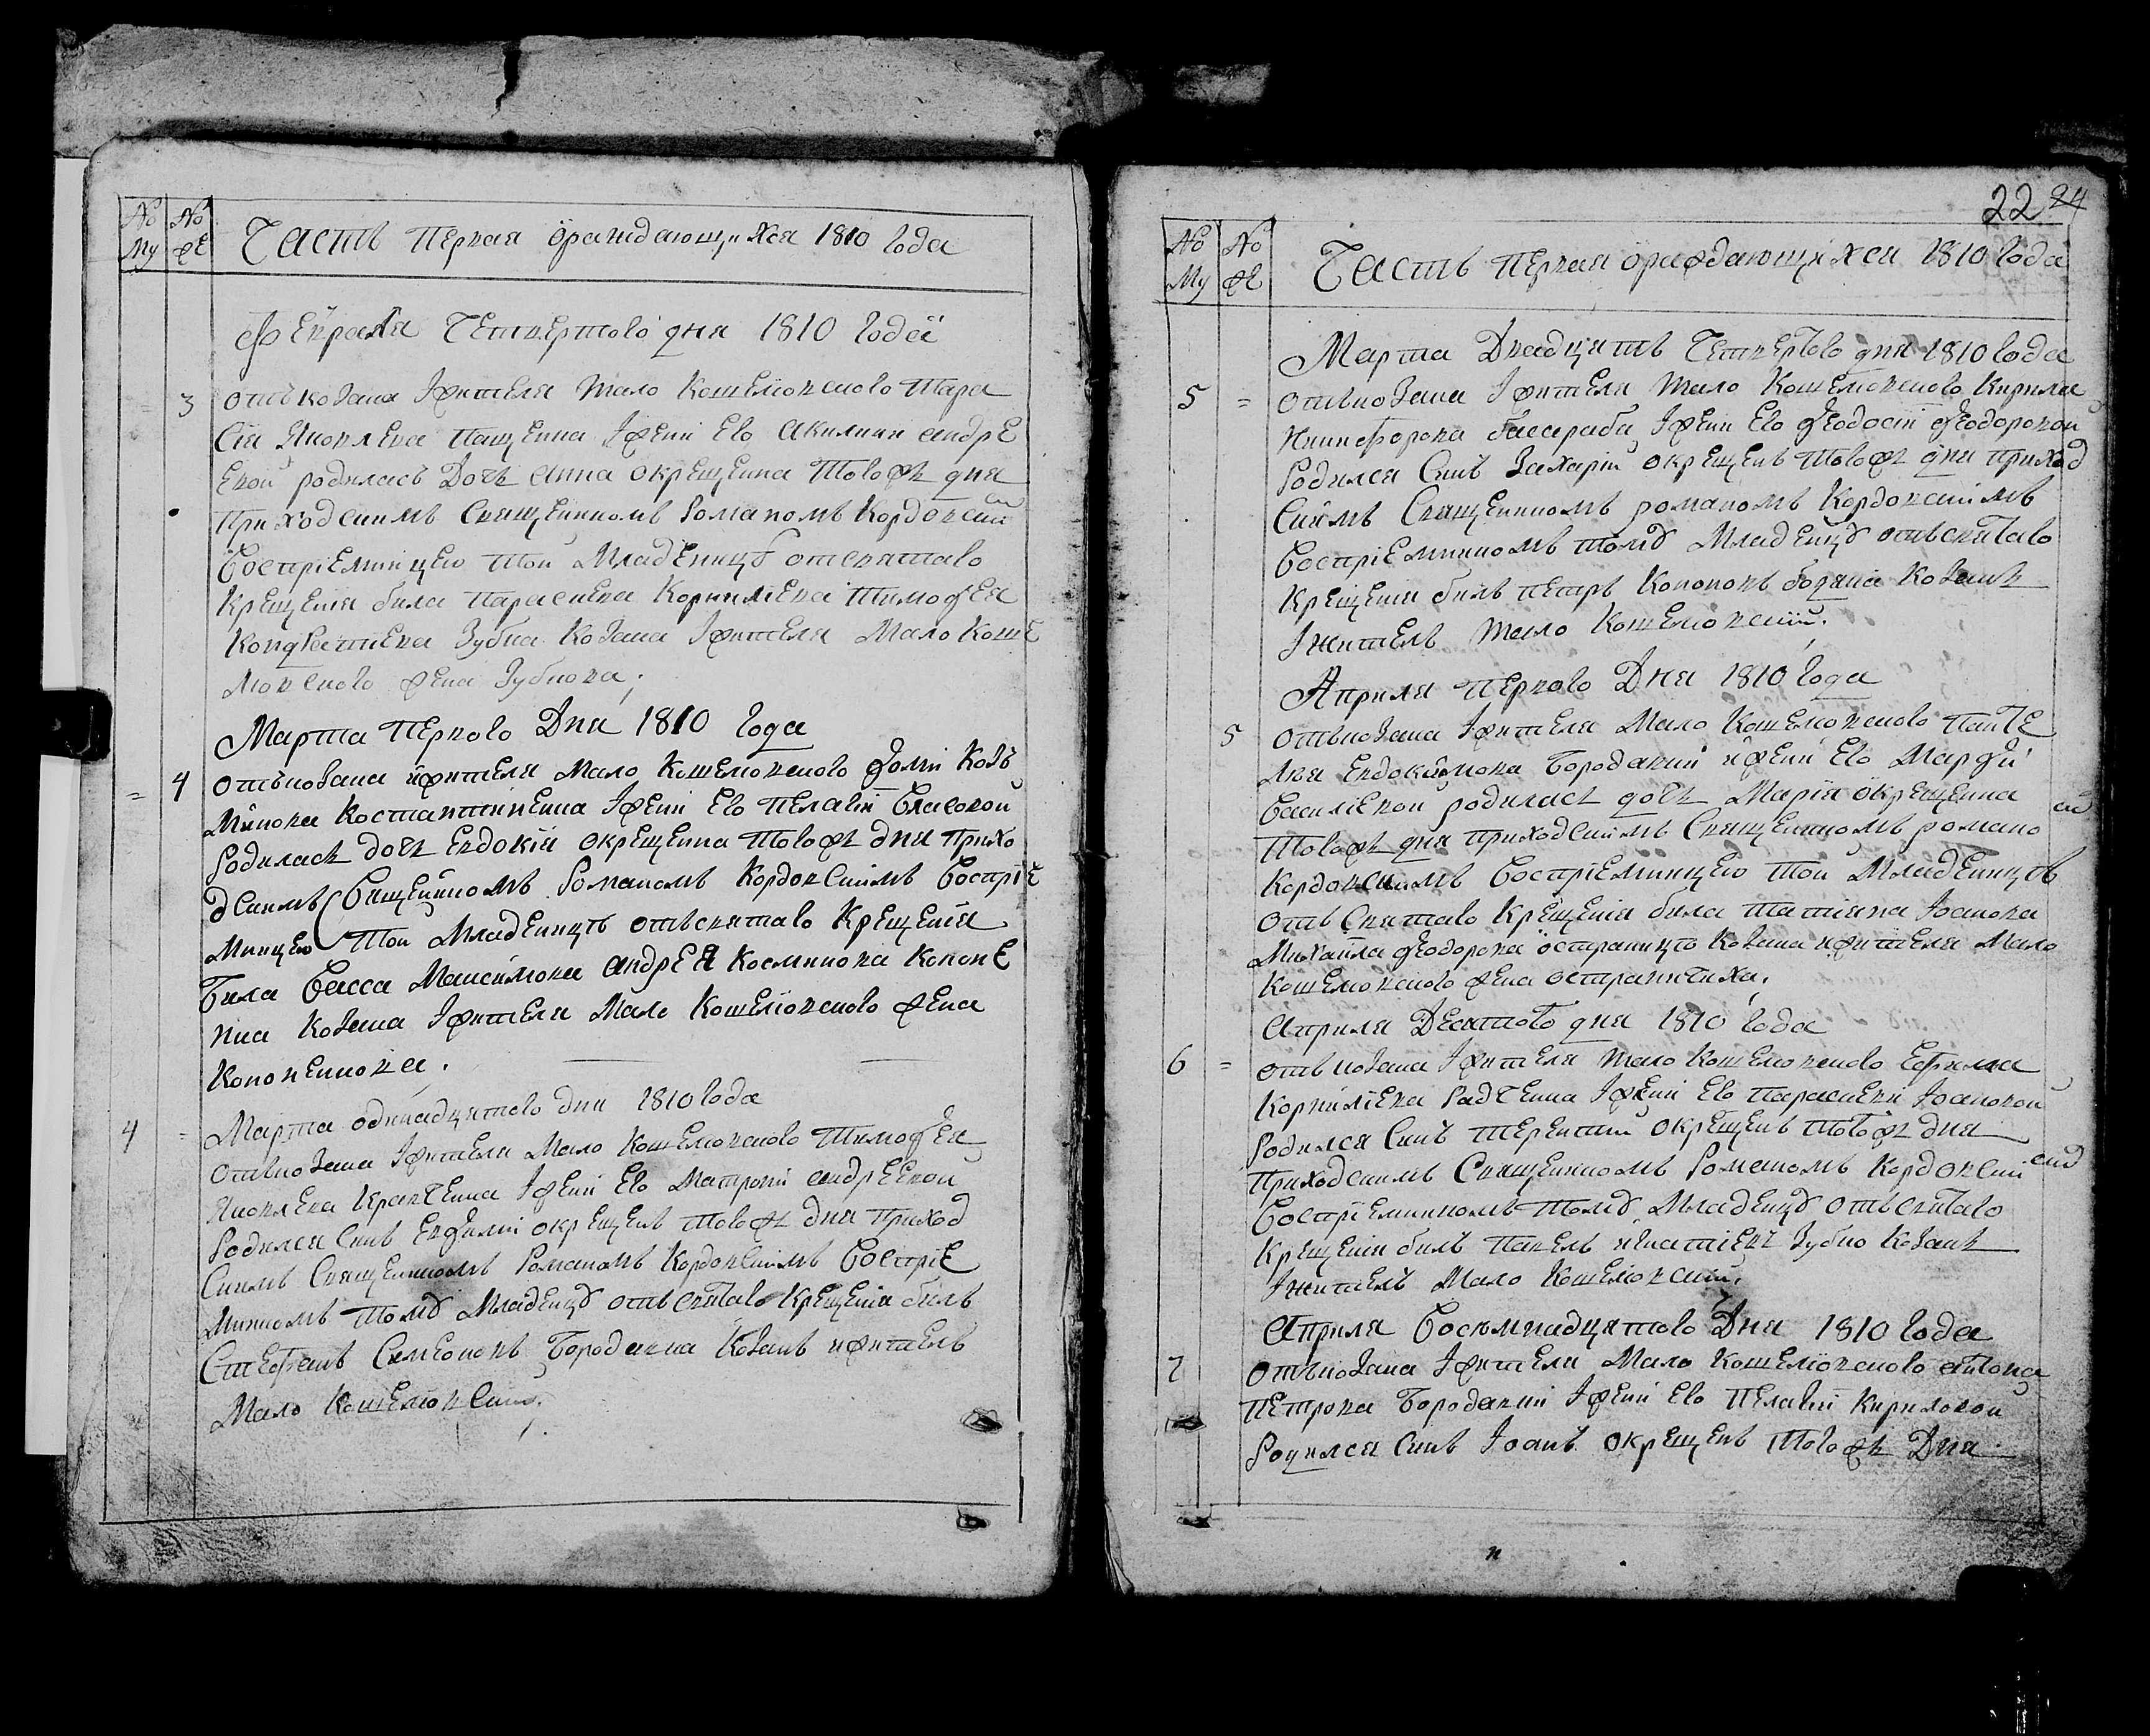 № Му
№ же
Часть первая ораждающихся 1810 года
Февраля Четвертого дня 1810 года
3 отъ козака Іжителя Мало Кошелювского Тара
сія Яковлева Пащенка Іжени Его Акилини Андре
евой родилась Дочь Анна окрещенна Тогожъ дня
Приходскимъ Священникомъ Романомъ Кордовским
Воспріемницею той Младеницѣ отсвятаго
Крещенія била Параскева Корнилиева Тимофея
Зубка Козака Іжителя Мало Коше
лювского жена Зубкова;
Марта Первого Дня 1810 года
= 4 отъкозака ижителя Мало Кошелювского Фоми Козъ
мйнова Костантиненка Іжени Его Пелагіи Власовой
Родилась дочь Евдокія окрещенна Тогожъ дня Прихо
дскимъ Священникомъ Романомъ Кордовскимъ Воспріе
мницею Той Младеницѣ отъсвятаго Крещенія
Била Васса Максимова Андрея Космикова Кононе
нка Козака Іжителя Мало Кошелювского жена
Кононенкова.
Марта одинадцятого дня 1810 года
4 = отъкозака Іжителя Мало Кошелювского Тимофея
Яковлева Іжени Его Матрони Андреевой
Родился Синъ Евфимій окрещенъ Тогожъ дня Приход
скимъ Священникомъ Романомъ Кордовскимъ Воспріе
мникомъ Тому Младенцу отъ святаго Крещенія билъ
Стефанъ Симеоновъ Бородавка Козакъ ижитель
Мало Кошелювскій.
22 24
№ Му
№ же
Часть первая ораждающихся 1810 года
Марта Двадцять Четвертого дня 1810 года
5 = отъкозака Іжителя Мало Кошелювского Кирила
Никифорова Басараба Іжени Его Феодосіи Феодоровой
Родился Синъ Захарій окрещенъ Тогожъ дня приход
скимъ Священникомъ романомъ Кордовскимъ
Воспріемникомъ тому Младенцу отъсвятаго
Крещенія билъ Петръ Кононовъ Козакъ
Іжитель Мало Кошелювскій.
Априля Первого Дня 1810 года
5 отъкозака Іжителя Мало Кошелювского Панте
лия Евдокимова Бородавки ижени Его Марфи
Василіевой родилась дочь Марія окрещенна
Тогожъ дня приходскимъ Священникомъ романо
Кордовскимъ Воспріемницею Той Младеницѣ
отъ Святаго Крещенія била Татіяна Іоанова
Михаила Феодорова Козака ижителя Мало
Кошелювского жена Остраничиха.
Априля Десятого дня 1810 года
6 = отъкозака Іжителя Мало Кошелювского Ефима
Корниліева Радченка Іжени Его Параскеви Іоановой
Родился Синъ Терентій окрещенъ Тогожъ дня
Приходскимъ Священникомъ Романомъ Кордовским
Воспріемникомъ Тому Младенцу отъ святаго
Крещенія билъ Павелъ Игнатіевъ Зубко Козакъ
Іжитель Мало Кошелювскій.
Априля Восемнадцятого Дня 1810 года
7 отъкозака Іжителя Мало Кошелювского Антона
Петрова Бородавки Іжени Его Пелагіи Кириловой
Родился Синъ Іоанъ окрещенъ Тогожъ Дня